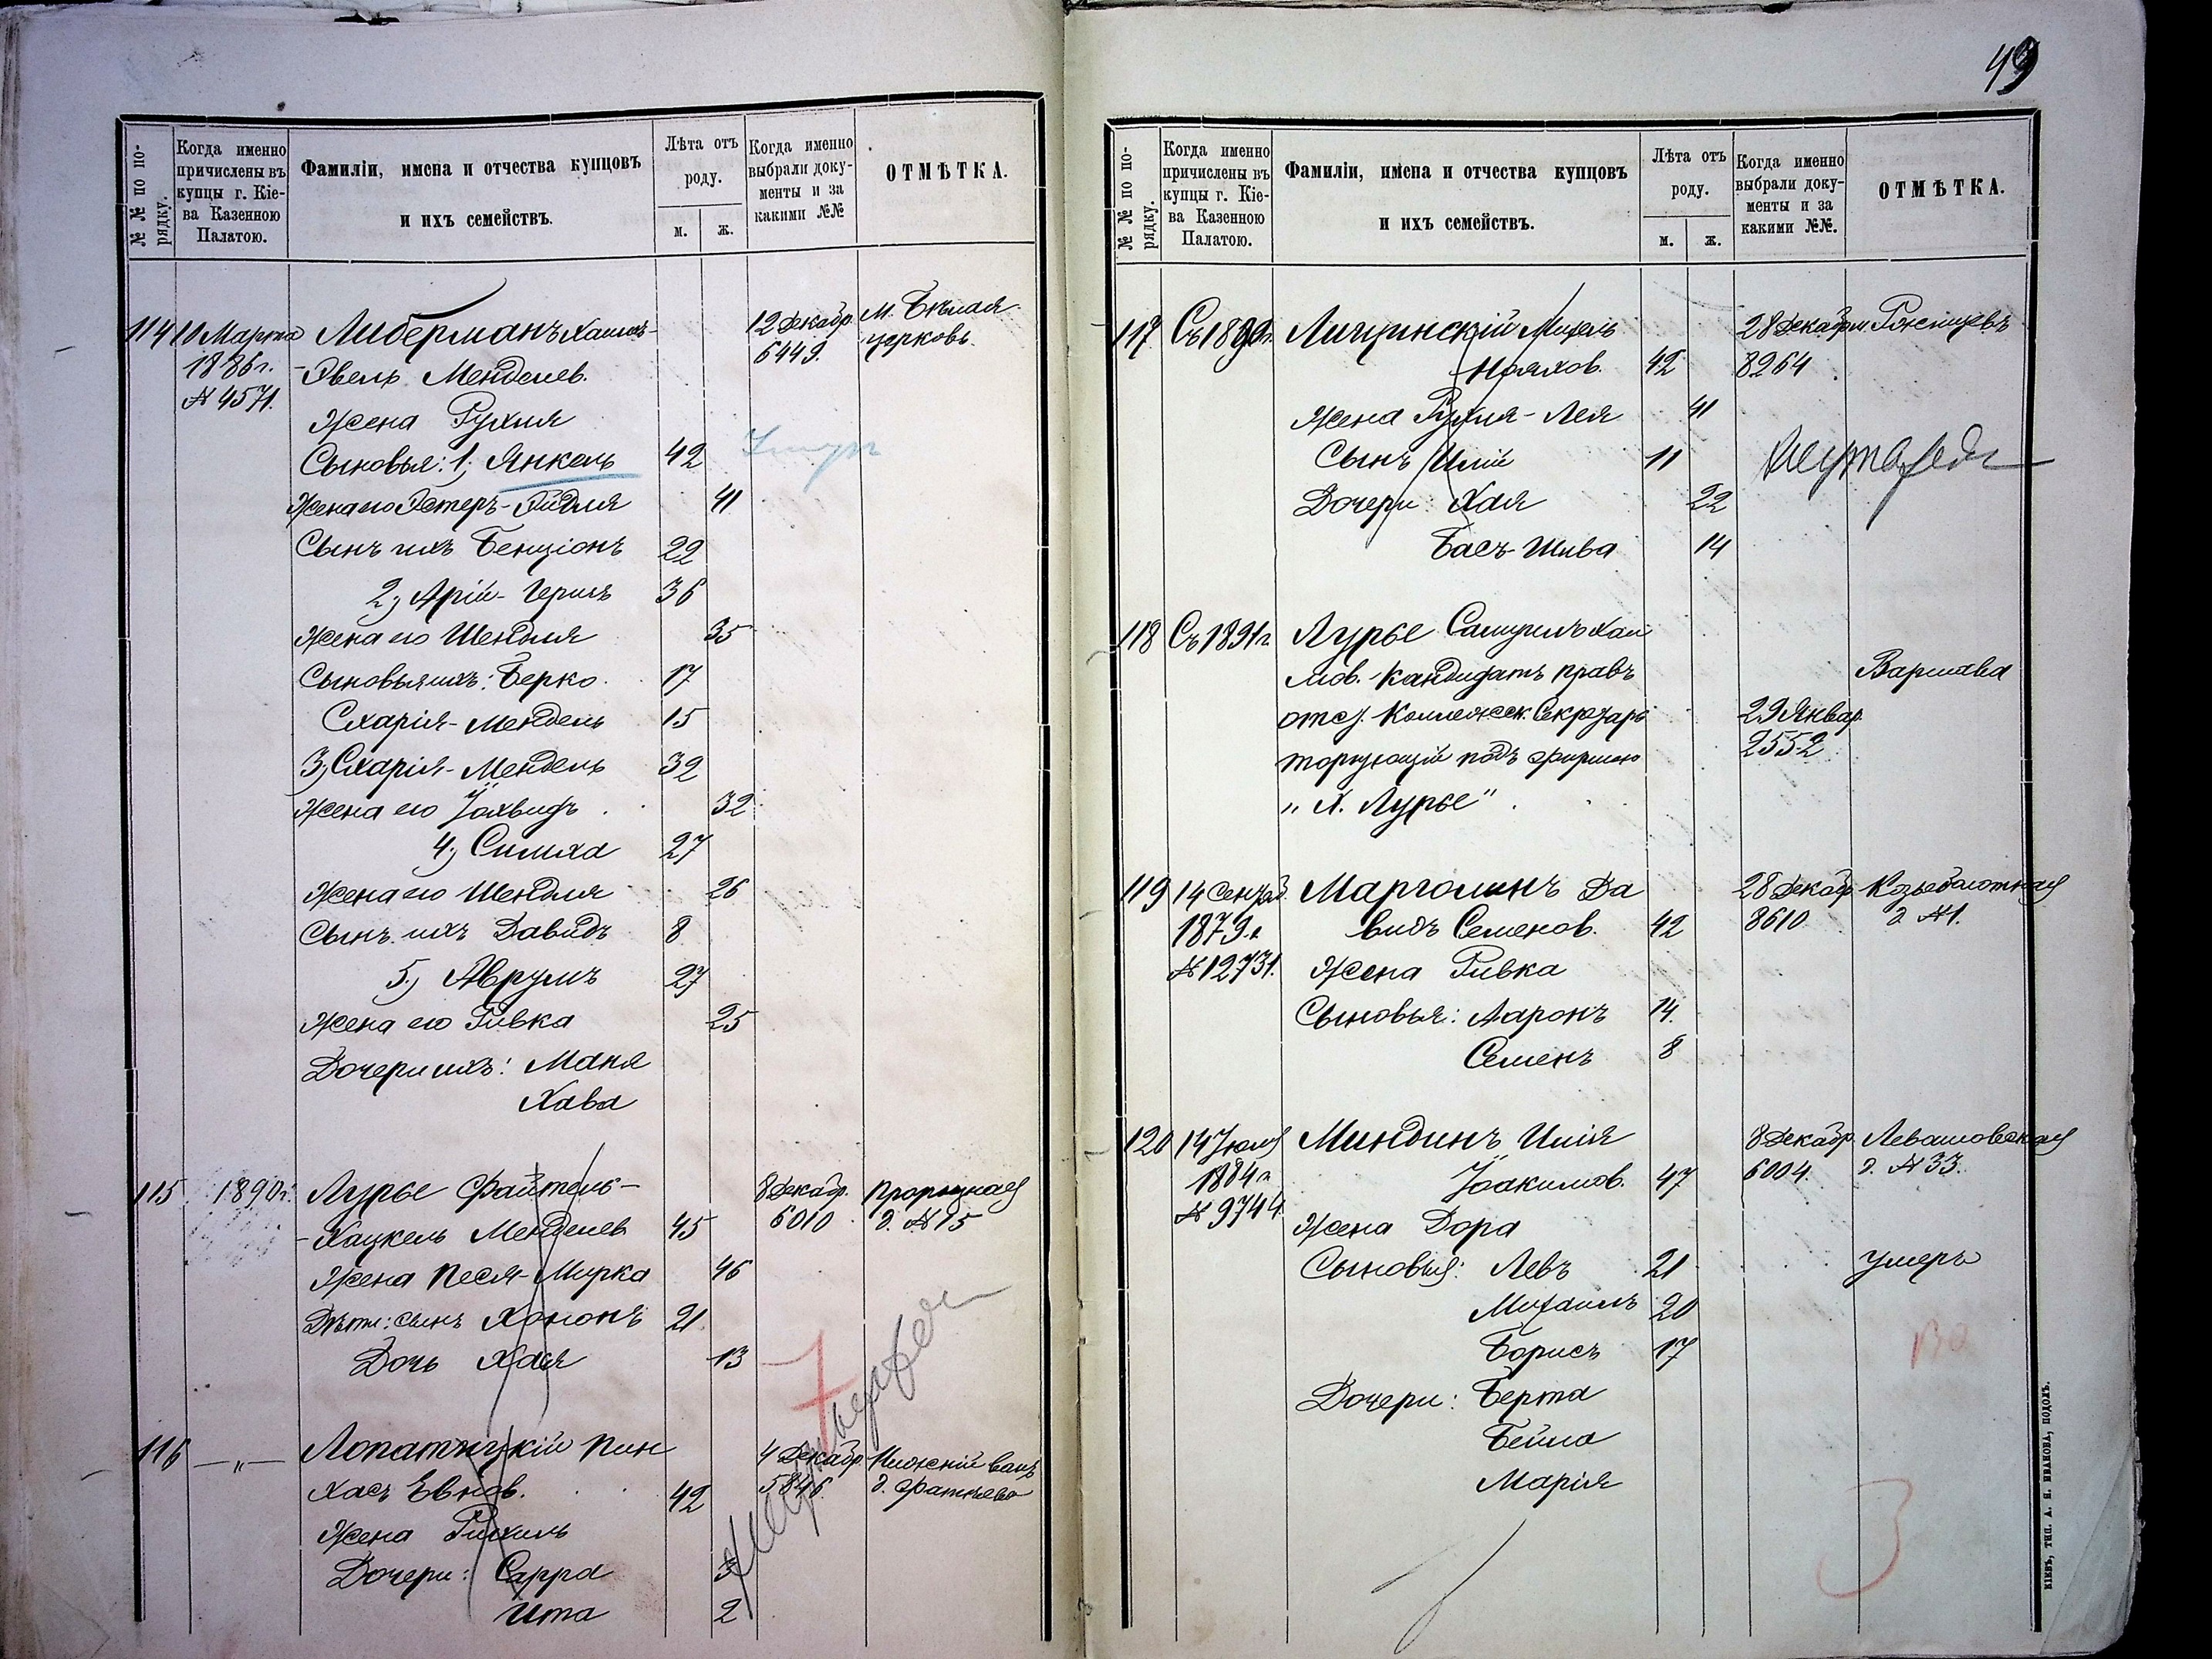 49
№№ по по-
рядку.
Когда именно
причислены въ
купцы г. Кіе-
ва Казенною
Палатою.
Фамиліи, имена и отчества купцовъ
и ихъ семействъ.
Лѣта отъ
роду.
м. ж.
Когда именно
выбрали доку-
менты и за
какими №№
ОТМѢТКА.
114 10 Марта Либерманъ Хаимъ- 12 Декабр. м. Бѣлая
1886 г. -Эвель Менделев. 6449. церковь.
№ 4571. Жена Рухля
Сыновья: 1, Янкель 42
Жена его Эстеръ-Эйдля 41
Сынъ ихъ Бенціонъ 22
2, Арій-Гершъ 36
Жена его Шендля 35
Сыновья ихъ: Берко 17
Схарія-Мендель 15
3, Схарія-Мендель 32
Жена его Іохвидъ 32
4, Симха 27
Жена его Шендля 26
Сынъ ихъ Давидъ 8
5, Аврумъ 27
Жена его Ривка 25
Дочери ихъ: Маня
Хава
115 1890 г. Лурье Файтель- 8 Декабр. Прорѣзная
-Хацкель Менделев 45 6010 д. № 15
Жена Песя-Мирка 46
Дѣти: сынъ Хононъ 21
Дочь Хая 13
116 —„— Лопатицкій Пин 4 Декабр.
хасъ Евнов. 42 5846.
Жена Рихиль
Дочери: Сарра 3
Ита 2
№№ по по-
рядку.
Когда именно
причислены въ
купцы г. Кіе-
ва Казенною
Палатою.
Фамиліи, имена и отчества купцовъ
и ихъ семействъ.
Лѣта отъ
роду.
м. ж.
Когда именно
выбрали доку-
менты и за
какими №№.
ОТМѢТКА.
117 Съ 1890 г. Личинскій Михель 28 Декабр. м. Рожищевъ
Нояхов. 42 8264
Жена Рухля-Лея 41
Сынъ Илій 11
Дочери: Хая 22
Басъ-Шива 14
118 Съ 1891 г. Лурье Самуилъ Хаи
мов. Кандидатъ правъ Варшава
отст. Коллежск. Секретарь 29 Январ.
торгующій подъ фирмою 2552
„Х. Лурье"
119 14 Сентяб. Марголинъ Да 28 Декабр. Козьеболотная
1879 г. видъ Семенов. 42 8610 д. № 1.
№ 12731. Жена Ривка
Сыновья: Ааронъ 14.
Семенъ 8
120 14 Іюля Миндинъ Илія 8 Декабр. Левашовская
1884 г. Іоакимов. 47 6004. д. № 33.
№ 9744 Жена Дора
Сыновья: Левъ 21 умеръ
Михаилъ 20
Борисъ 17
Дочери: Берта
Бейла
Марія
3
КІЕВЪ, ТИП. А. Н. ИВАНОВА, ПОДОЛЪ.